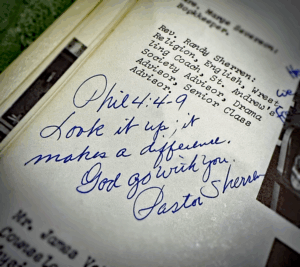 Bookkeeper.
Rev. Randy Sherren:
Religion, English, Wrest-
ling Coach, St. Andrew's
Society Advisor, Drama
Advisor, Senior Class
Advisor.
Phil 4:4-9
Look it up; it
makes a difference.
God go with you.
Pastor Sherren
Mr. James